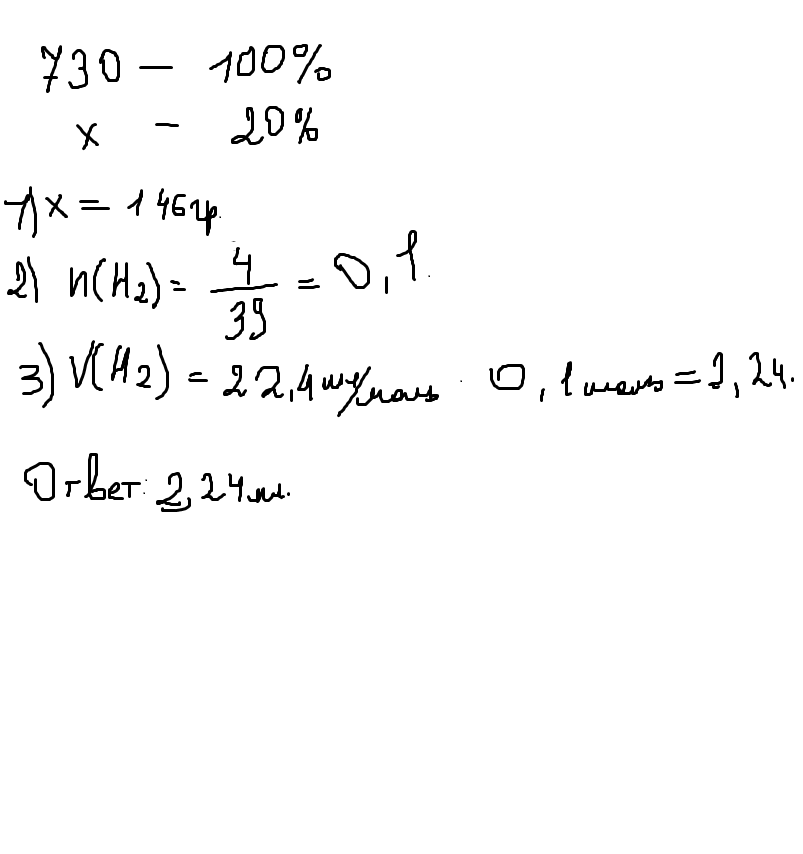 730 — 100%
x — 20%
1) x = 146гр.
2) n(H2) = 4/39 = 0,1.
3) V(H2) = 22,4мл/моль · 0,1моль = 2,24.
Ответ: 2,24мл.